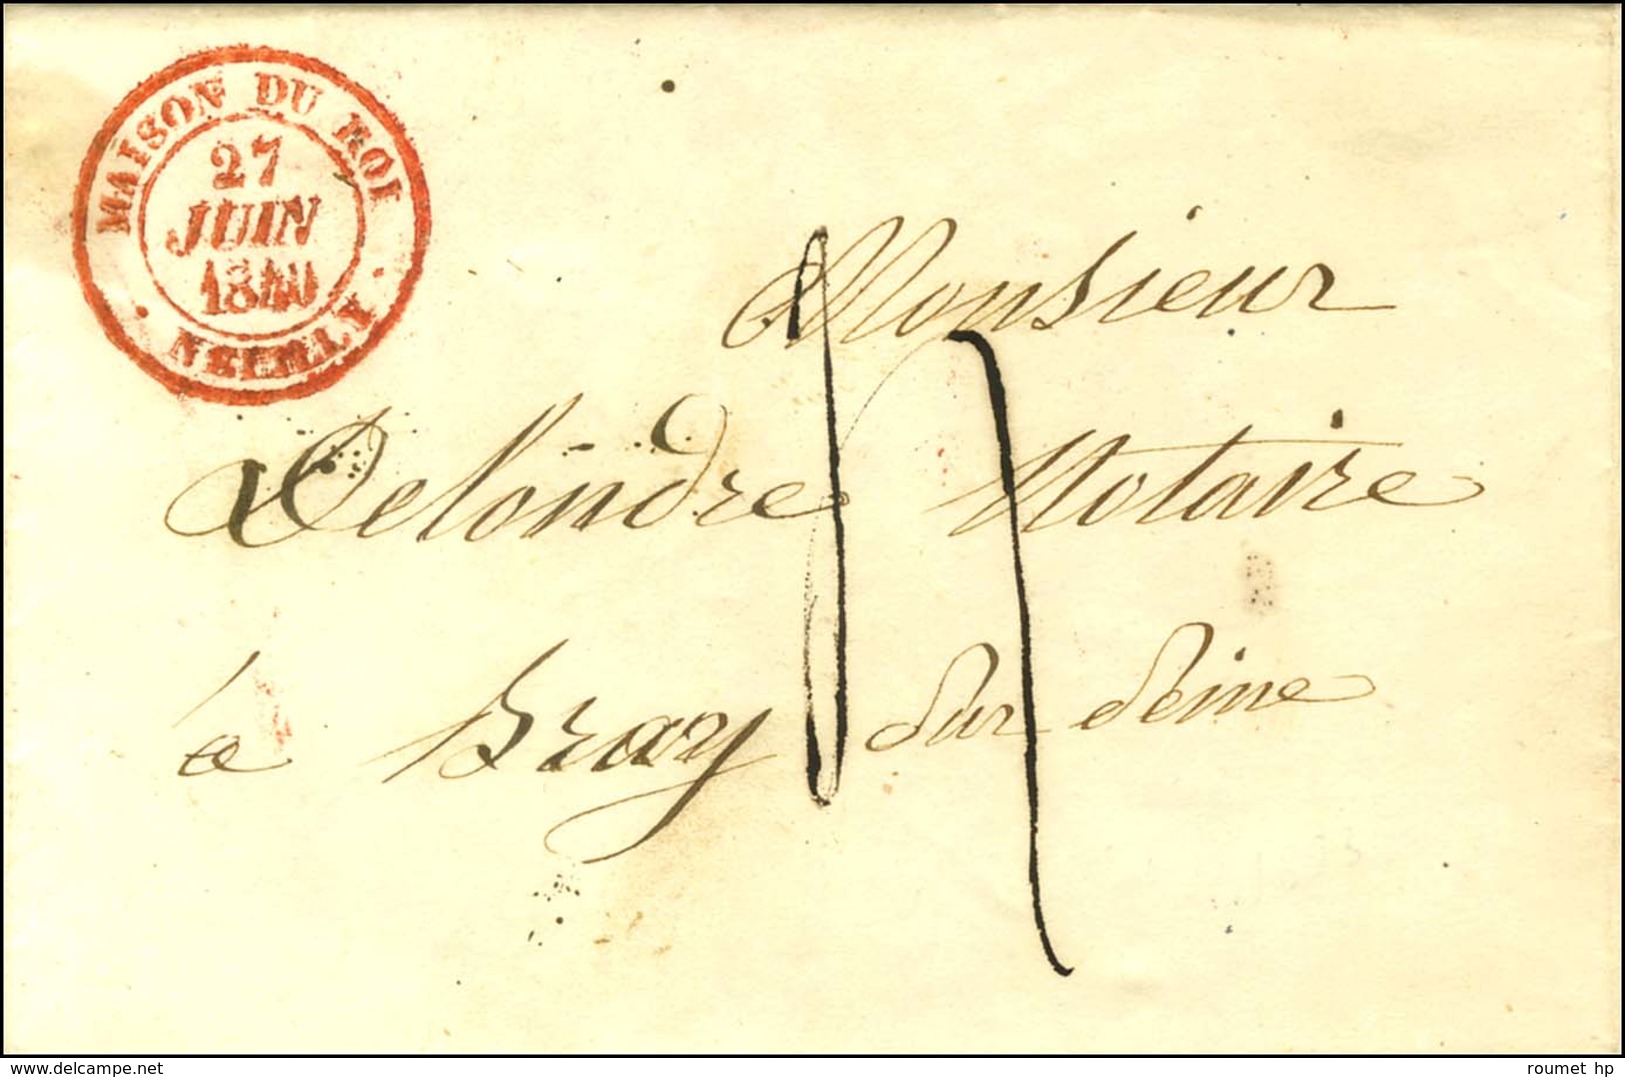 MAISON DU ROI
27
JUIN
1840
NEUILLY
Monsieur
Delondre Notaire
à Bray sur Seine
www.delcampe.net
roumet hp